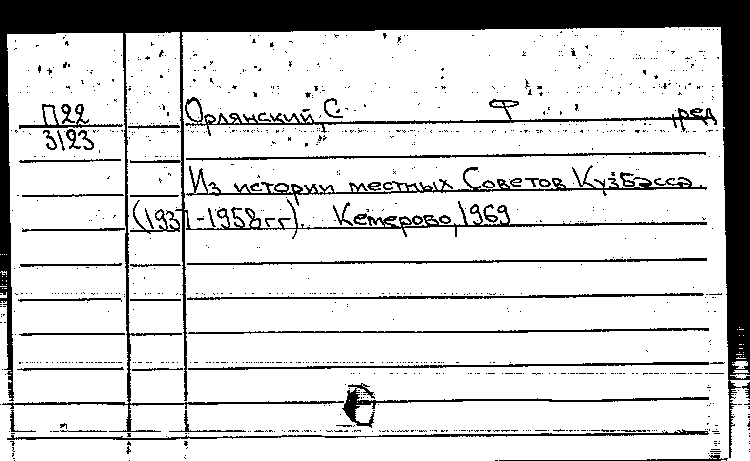 П22
3123
Орлянский, С. Ф. ,ред
Из истории местных Советов Кузбасса
(1937-1958гг). Кемерово, 1969